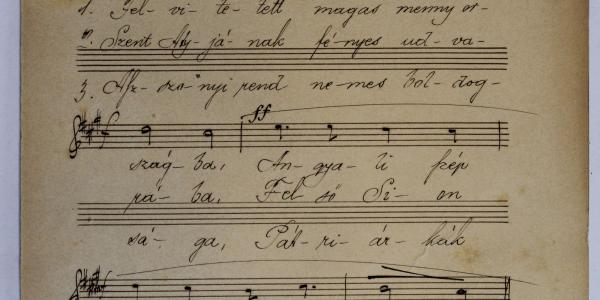 1. Fel- vi- te- tett magas menny or-
2. Szent Aty- já- nak fé- nyes ud- va-
3. Asz- szo- nyi rend ne- mes bol- dog-
ff
szág- ba, An- gya- li szép
rá- ba, Fel ső Si- on
sá- ga, Pát- ri- ár- kák